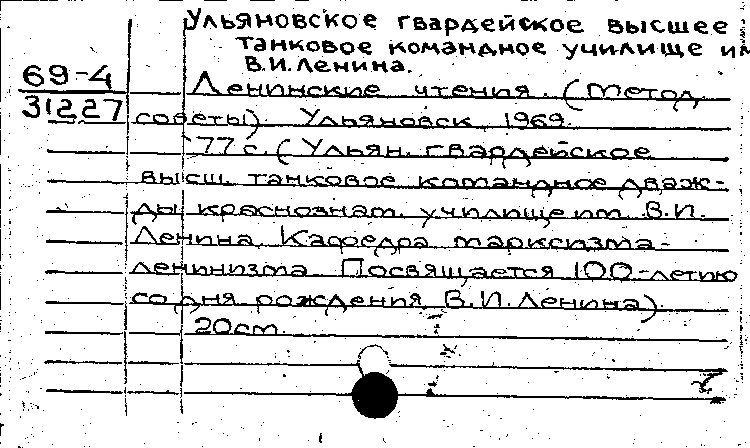 Ульяновское гвардейское высшее
танковое командное училище им
В.И.Ленина.
69-4
31227
Ленинские чтения. (Метод.
советы). Ульяновск, 1969.
77 с. (Ульян. гвардейское
высш. танковое командное дваж-
ды краснознам. училище им. В.И.
Ленина. Кафедра марксизма-
ленинизма. Посвящается 100-летию
со дня рождения В.И.Ленина).
20см.